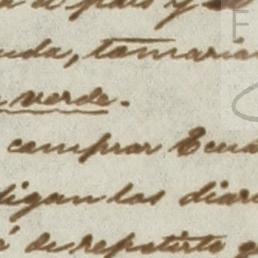 a país y se
uda, tomaría
a verde.
comprar Ecua
digan los diari
á de repetirte q
F